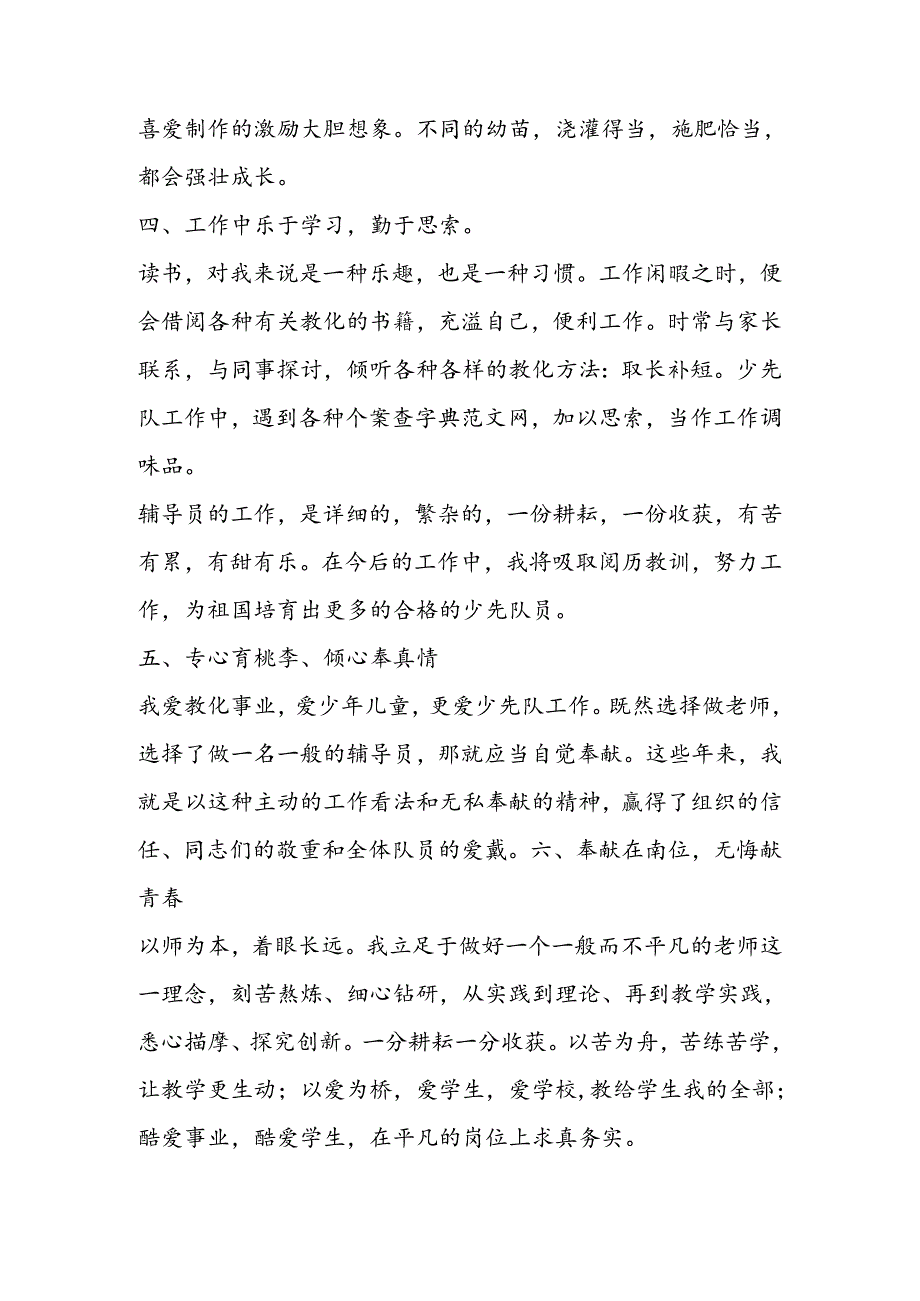 喜爱制作的激励大胆想象。不同的幼苗，浇灌得当，施肥恰当，
都会强壮成长。
四、工作中乐于学习，勤于思索。
读书，对我来说是一种乐趣，也是一种习惯。工作闲暇之时，便
会借阅各种有关教化的书籍，充溢自己，便利工作。时常与家长
联系，与同事探讨，倾听各种各样的教化方法：取长补短。少先
队工作中，遇到各种个案查字典范文网，加以思索，当作工作调
味品。
辅导员的工作，是详细的，繁杂的，一份耕耘，一份收获，有苦
有累，有甜有乐。在今后的工作中，我将吸取阅历教训，努力工
作，为祖国培育出更多的合格的少先队员。
五、专心育桃李、倾心奉真情
我爱教化事业，爱少年儿童，更爱少先队工作。既然选择做老师，
选择了做一名一般的辅导员，那就应当自觉奉献。这些年来，我
就是以这种主动的工作看法和无私奉献的精神，赢得了组织的信
任、同志们的敬重和全体队员的爱戴。六、奉献在南位，无悔献
青春
以师为本，着眼长远。我立足于做好一个一般而不平凡的老师这
一理念，刻苦熬炼、细心钻研，从实践到理论、再到教学实践，
悉心描摩、探究创新。一分耕耘一分收获。以苦为舟，苦练苦学，
让教学更生动；以爱为桥，爱学生，爱学校,教给学生我的全部；
酷爱事业，酷爱学生，在平凡的岗位上求真务实。